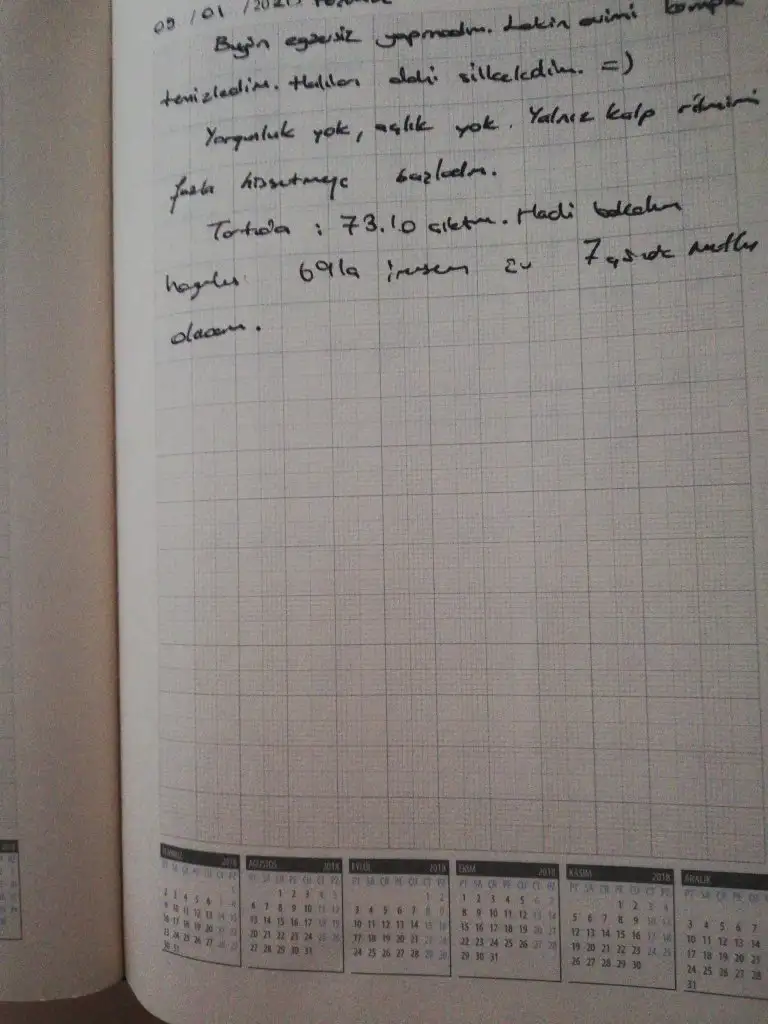 09/01/2021
Bugün egzersiz yapmadım. Lakin evimi komple
temizledim. Halıları dahi silkeledim. =)
Yorgunluk yok, açlık yok. Yalnız kalp ritmimi
fazla hissetmeye başladım.
Tartıda : 73.10 çıktım. Hadi bakalım
69'la
7
olacam.
TEMMUZ 2018
AĞUSTOS 2018
EYLÜL 2018
EKİM 2018
KASIM 2018
ARALIK
PT SA ÇR PE CU CT PZ
1 2 3 4 5
6 7 8 9 10 11 12
13 14 15 16 17 18 19
20 21 22 23 24 25 26
27 28 29 30 31
PT SA ÇR PE CU CT PZ
1 2
3 4 5 6 7 8 9
10 11 12 13 14 15 16
17 18 19 20 21 22 23
24 25 26 27 28 29 30
PT SA ÇR PE CU CT PZ
1 2 3 4 5 6 7
8 9 10 11 12 13 14
15 16 17 18 19 20 21
22 23 24 25 26 27 28
29 30 31
PT SA ÇR PE CU CT PZ
1 2 3 4
5 6 7 8 9 10 11
12 13 14 15 16 17 18
19 20 21 22 23 24 25
26 27 28 29 30
PT SA ÇR PE CU
3 4 5 6 7
10 11 12 13 14
17 18 19 20 21
24 25 26 27 28
31